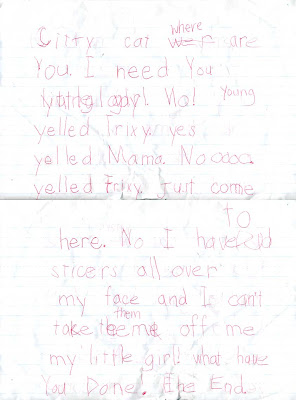 Citty cat where are
You. I need You
Young
lady! No!
yelled Trixy. yes
yelled Mama. Noooo.
yelled Trixy. Just come
to
here. No I have
sticers all over
my face and I can't
take them off me
my little girl! what have
You Done. The End.